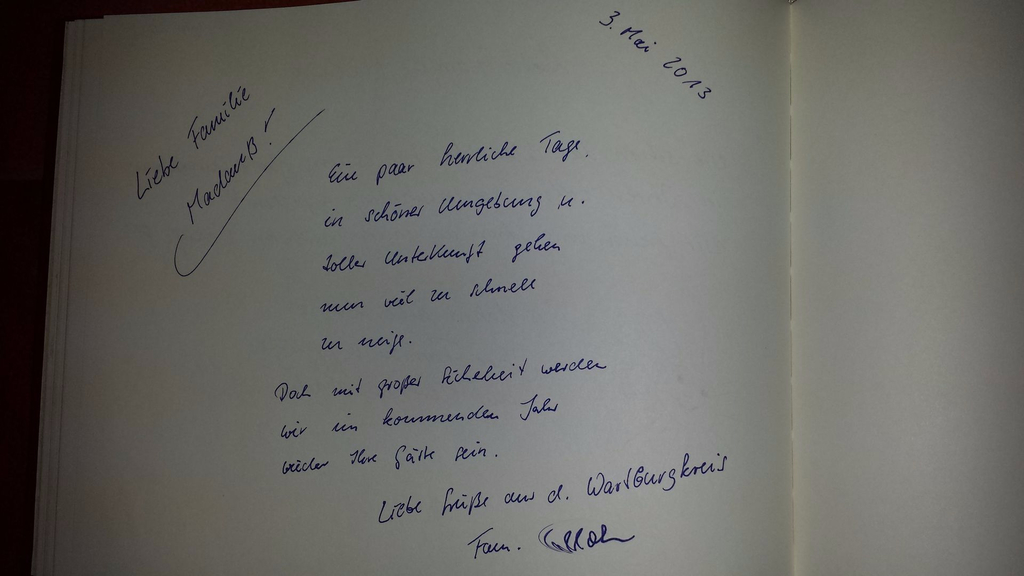 3. Mai 2013
Liebe Familie
Ein paar herrliche Tage,
in schöner Umgebung u.
toller Unterkunft gehen
nun viel zu schnell
zu neige.
Doch mit großer Sicherheit werden
wir im kommenden Jahr
wieder Ihre Gäste sein.
Liebe Grüße aus d. Wartburgkreis
Fam.